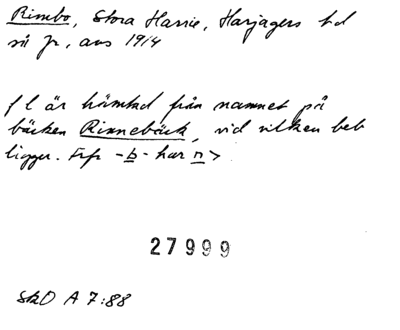 Rimbo, Stora Harrie, Harjagers hd
nä jr, ans 1914
f l är hämtad från namnet på
bäcken Rinnebäck, vid vilken beb
ligger. Frf -b- har n>
27999
SkO A 7:88